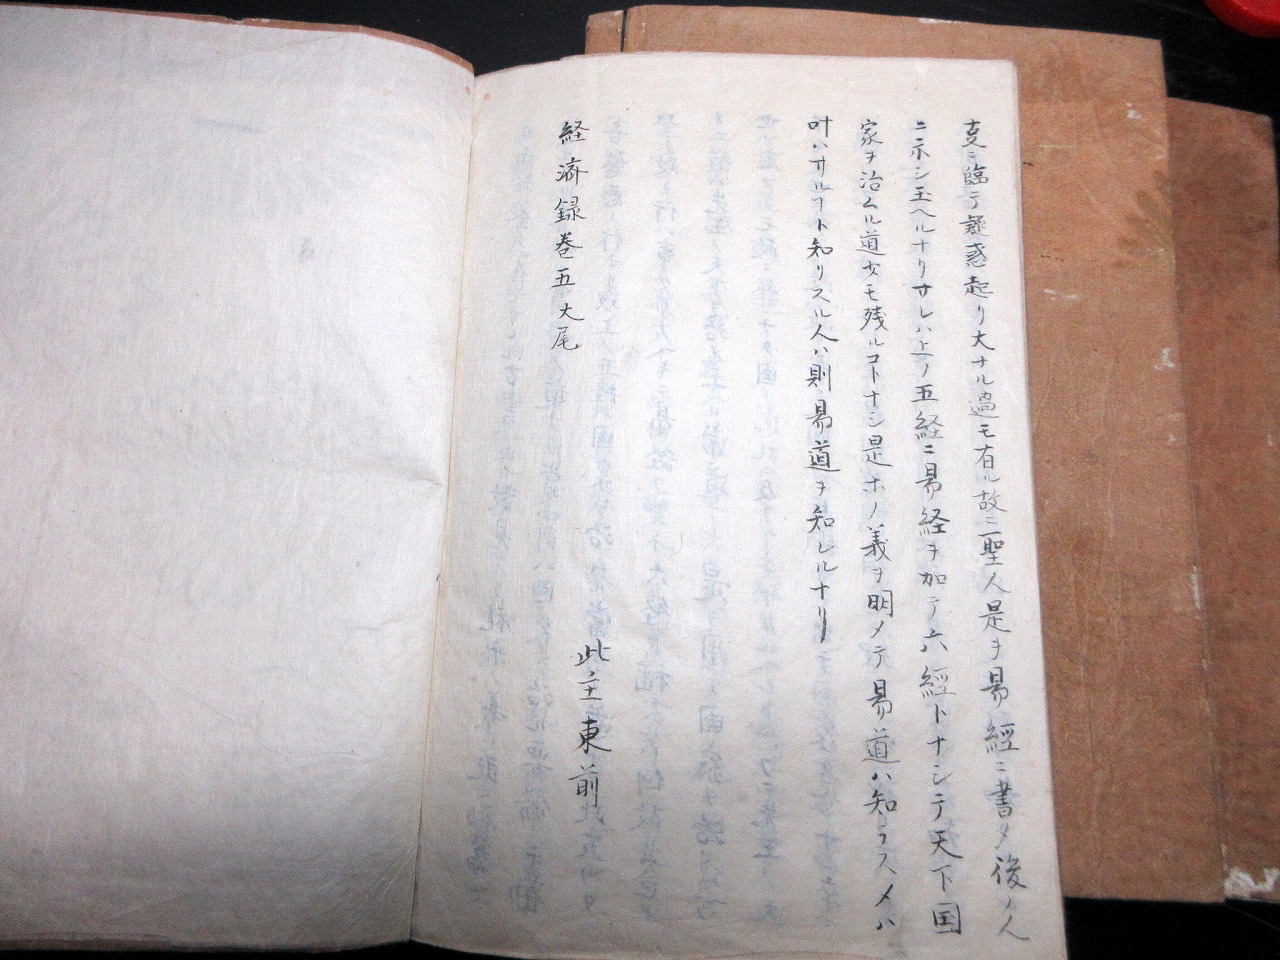 支ニ臨テ疑惑起リ大ナル過モ有ル故ニ聖人是ヲ易經ニ書メ後ノ人
ニ示シ玉ヘルナリサレハ上ノ五経ニ易経ヲ加テ六經トナシテ天下国
家ヲ治ムル道少モ残ルコトナシ是ホノ義ヲ明メテ易道ハ知ラスメハ
叶ハサルヿト知リスル人ハ則易道ヲ知レルナリ
経済録巻五大尾
此主東前